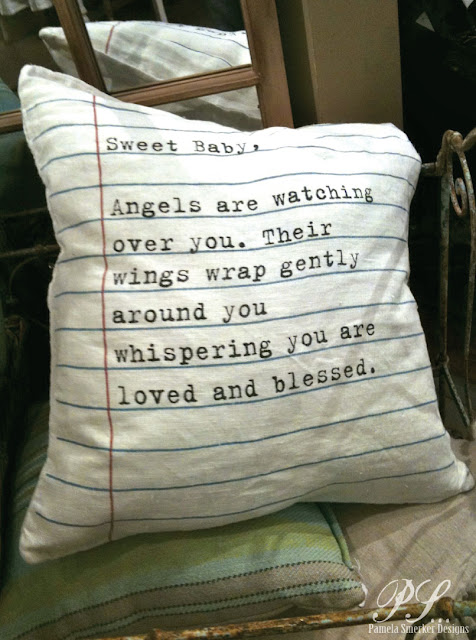 Sweet Baby,
Angels are watching
over you. Their
wings wrap gently
around you
whispering you are
loved and blessed.
P.S...
Pamela Smerker Designs